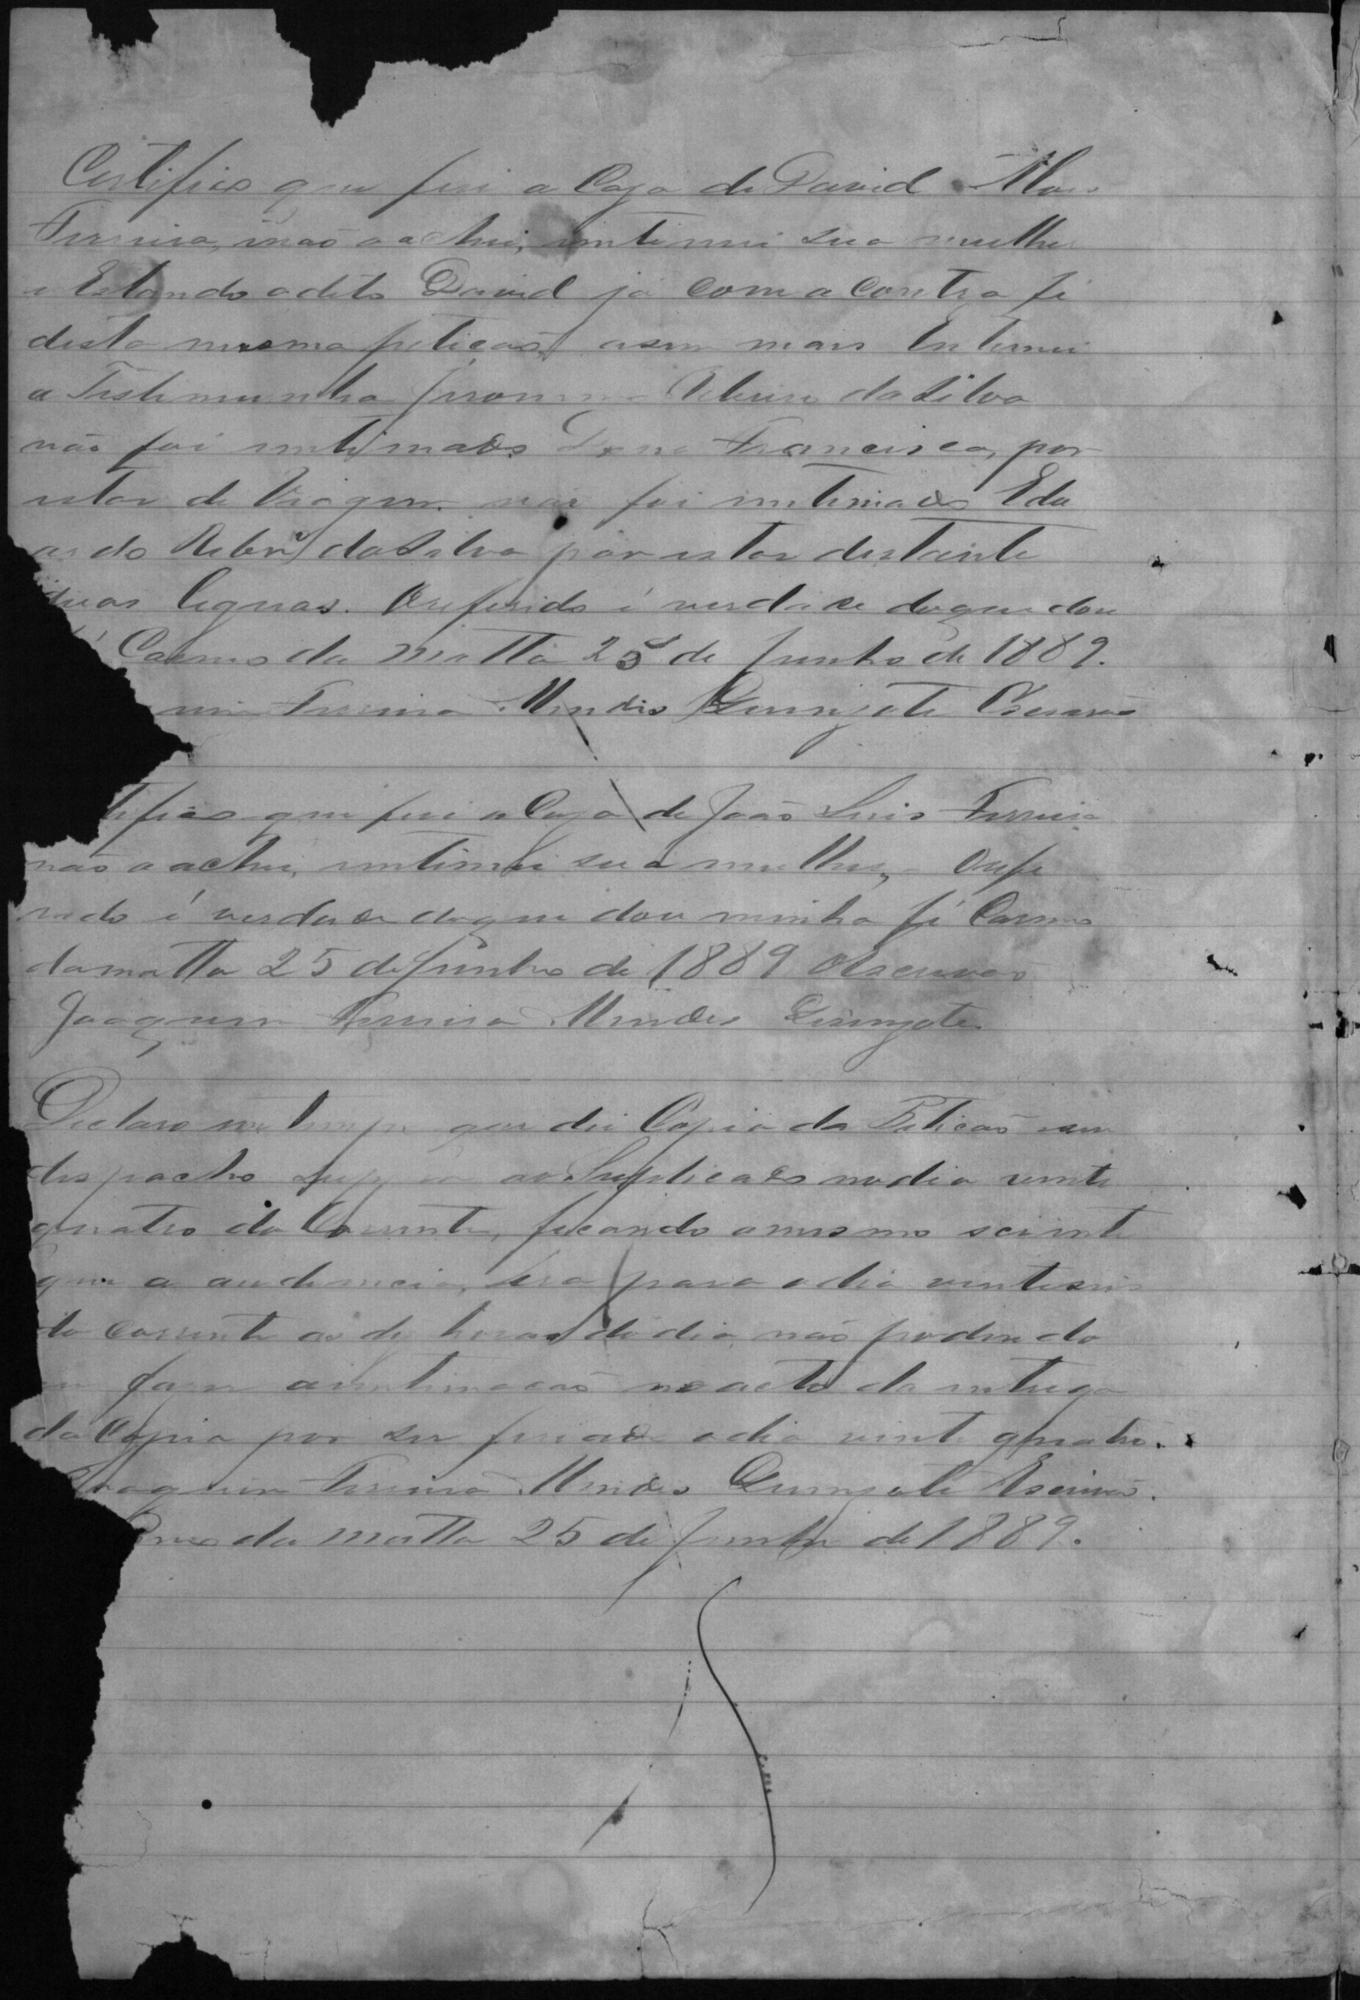 Certifico que fui a Caza de David Alves
Ferreira, não o achei, intimei sua mulher
e Estando o dito David já com a Contra fé
desta mesma petição, asim mais Entimei
a Testimunha Jeronimo Ribeiro da Silva
não foi intimado Francisco, por
estar de Viagem. não foi intimado Edu
ardo Ribrº da Silva por estar distante
duas legoas. Oreferido é verdade doque dou
Carmo da Matta 25 de Junho de 1889.
Ferreira Mendes Gunzote Escrivão
tifico que fui a Caza de João Luis Ferreira
não o achei, intimei sua mulher, Orefe
rido é verdade doque dou minha fé Carmo
da Matta 25 de Junho de 1889 OEscrivão
Joaquim Ferreira Mendes Gunzote
Declaro em tempo que dei Copia da Petição com
despacho ao Suplicado no dia vinte
quatro do Corrente, ficando o mesmo sciente
que a audiencia, sera para o dia vinte seis
do corrente as de horas do dia, não podendo
fazer a intimação no acto da entrega
da Copia por ser feriado o dia vinte quatro.
Joaquim Ferreira Mendes Gunzote Escrivão.
Carmo da Matta 25 de Junho de 1889.